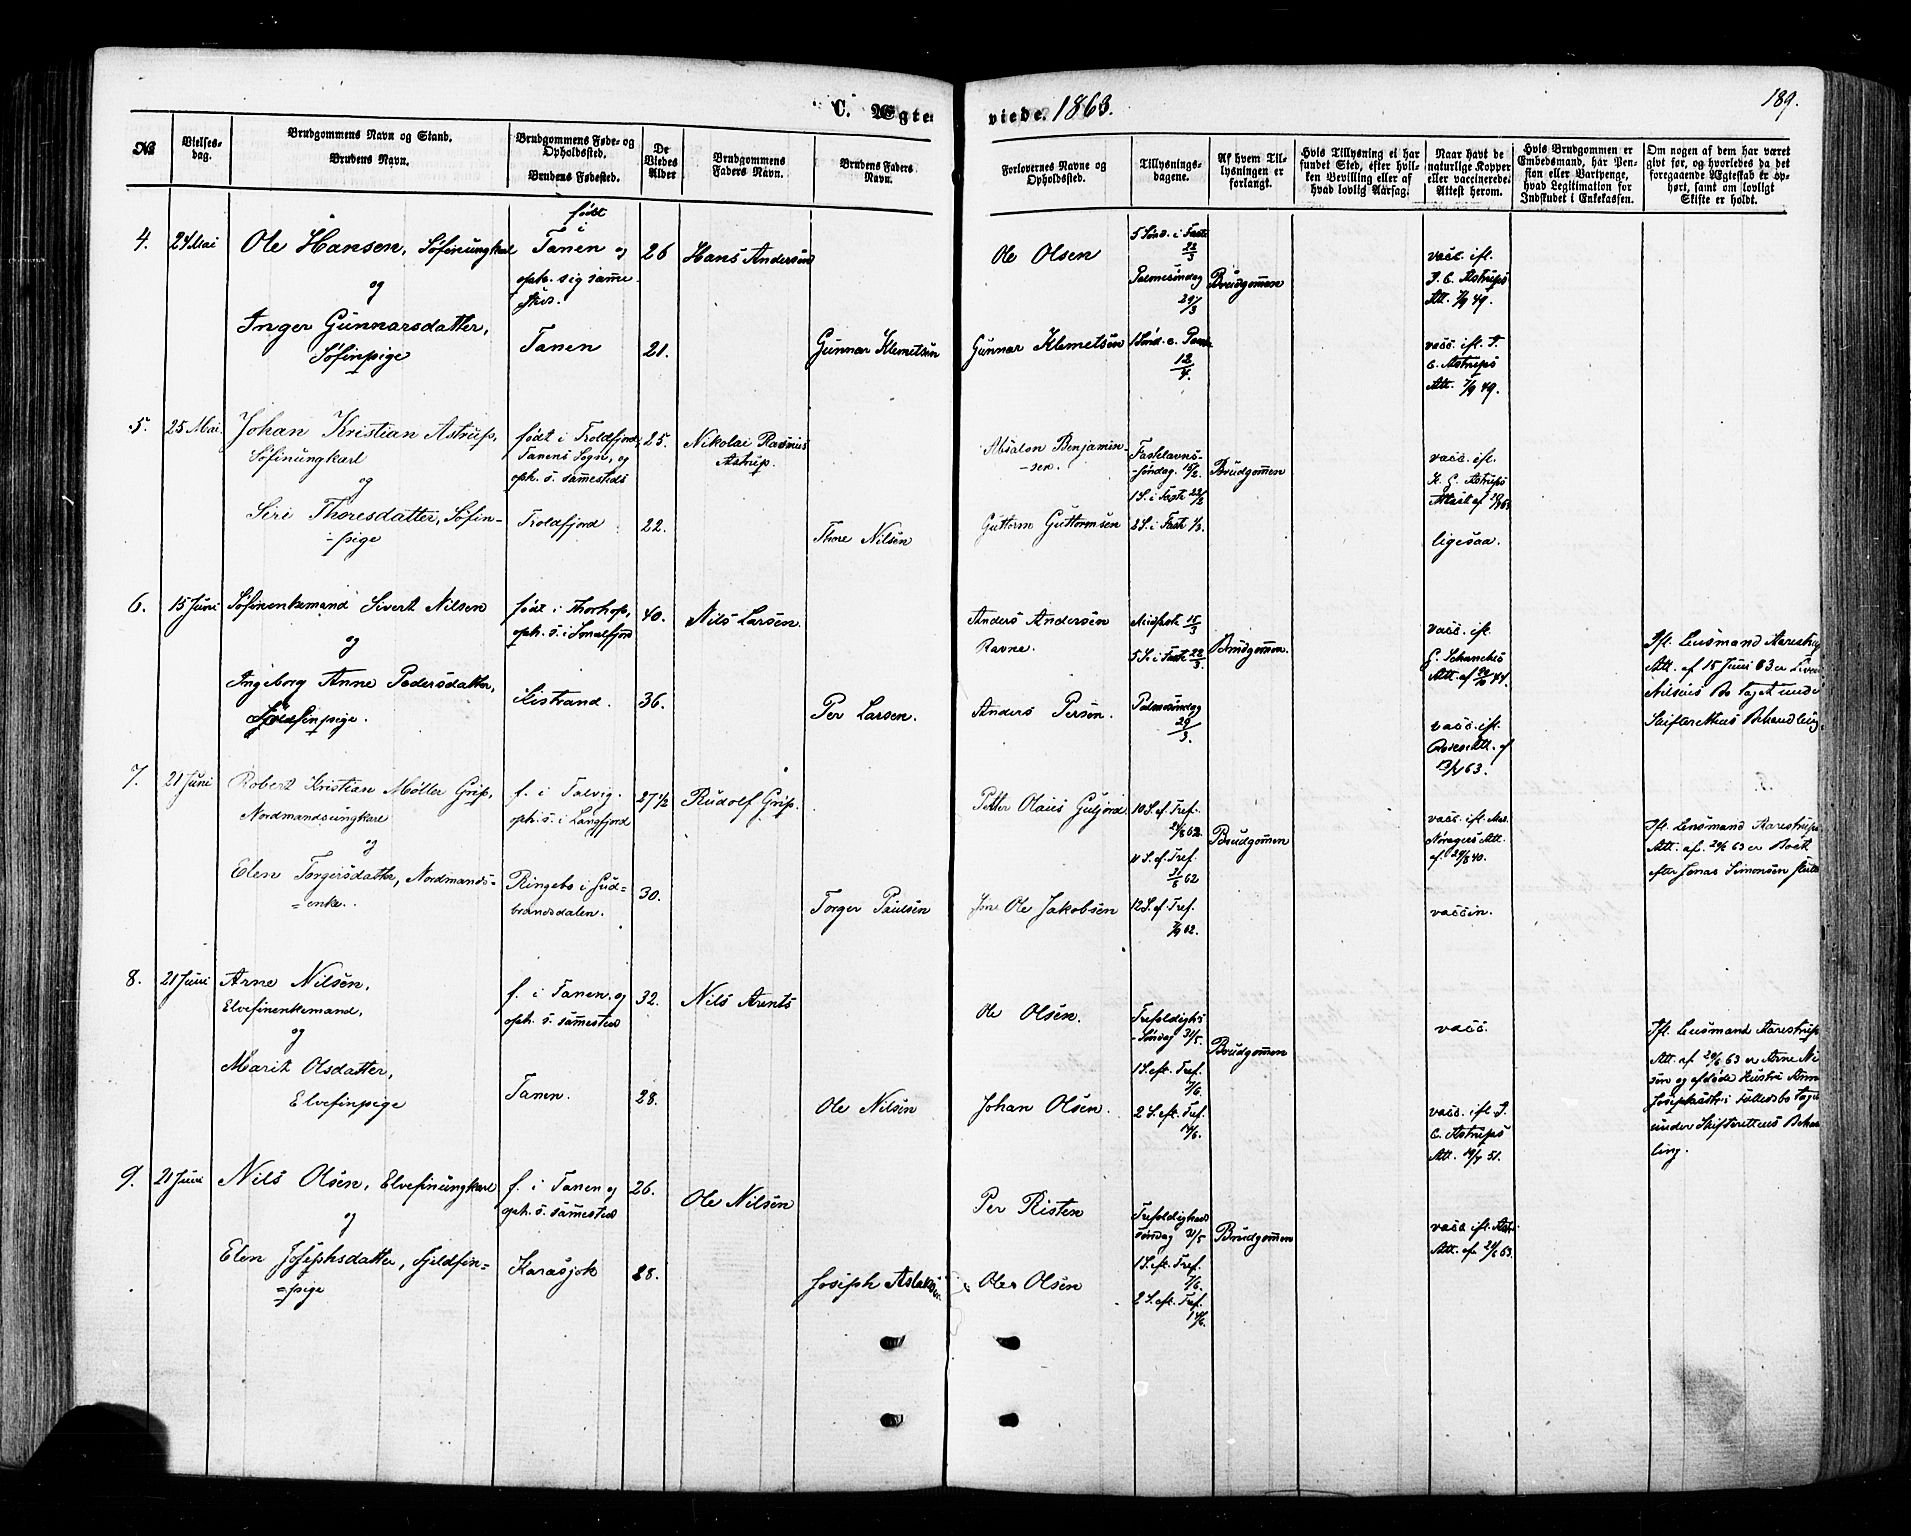 C. Ægteviede. 1863.
189.
No
Vielsesdag.
Brudgommens Navn og Stand.
Brudens Navn.
Brudgommens Føde- og Opholdssted.
Brudens Fødested.
De Viedes Alder
Brudgommens Faders Navn.
Brudens Faders Navn.
Forlovernes Navne og Opholdssted.
Tillysnings-dagene.
Af hvem Tillysningen er forlangt.
Hvis Tillysning ei har fundet Sted, efter hvilken Bevilling eller af hvad lovlig Aarsag.
Naar havt de naturlige Kopper eller vaccinerede. Attest herom.
Hvis Brudgommen er Embedsmand, har Pension eller Vartpenge, hvad Legitimation for Indskudet i Enkekassen.
Om nogen af dem har været givt før, og hvorledes da det foregaaende Ægteskab er ophørt, samt om lovligt Skifte er holdt.
4. 24 Mai
Ole Hansen, Søfinungkarl
og
Inger Gunnarsdatter,
Søfinpige
født
i
Tanen og
oph. sig samme
Tanen
26
21.
Hans Andersen
Gunnar Klemetsen
Ole Olsen
Gunnar Klemetsen
5 Sønd. i Faste
22/3
Palmesøndag
29/3
1 Sønd. e. Paaske
12/4.
Brudgommen
vacc. ifl.
J. C. Astrups
Att. 7/9 49.
vacc. ifl. J.
C. Astrups
Att. 7/9 49.
5. 25 Mai.
Johan Kristian Astrup,
Søfinungkarl
og
Siri Thoresdatter, Søfin-
-pige
født i Troldfjord,
Tanens Sogn, og
oph. s. samesteds
Troldfjord
25.
22.
Nikolai Rasmus
Astrup.
Thore Nilsen
Absalon Benjamin-
-sen.
Guttorm Guttormsen
Fastelavns-
-søndag. 15/2.
1 S. i Fast. 22/2
2 S. i Fast. 1/3.
Brudgommen
vacc. ifl.
Astrups
ligesaa.
6. 15 Juni
Søfinenkemand Sivert Nilsen
og
Ingeborg Anne Pedersdatter,
Fjeldfinpige.
født i Thorhop,
oph. s. i Smalfjord
Kistrand.
40.
36.
Nils Larsen.
Per Larsen.
Anders Andersen
Ravne.
Anders Persen.
Midfast. 15/3
5 S. i Fast. 22/3.
Palmesøndag
29/3.
Brudgommen.
vacc. ifl.
G. Schanches
vacc. ifl.
63.
Ifl. Lensmand Aarestrup
Att. af 15 Juni 63 er Sivert
Nilsens Bo taget under
Skifterettens Behandling.
7. 21 Juni
Robert Kristian Møller Grip,
Nordmandsungkarl
og
Elen Torgersdatter, Nordmands-
-enke.
f. i Talvig.
oph. s. i Langfjord
Ringebo i Gud-
brandsdalen.
27 1/2
30.
Rudolf Grip.
Torger Paulsen
Petter Olaus Guljord
Ole Jakobsen
10 S. ef. Tref.
24/8 62.
11 S. ef. Tref.
31/8 62
12 S. ef. Tref.
7/9 62.
Brudgommen
vacc. ifl.
Att.
vaccin.
Ifl. Lensmand Aarestrups
Att. af. 20/6 63 er Boet
efter Jonas Simonsen
8. 21 Juni
Arne Nilsen,
Elvefinenkemand,
og
Marit Olsdatter,
Elvefinpige
f. i Tanen, og
oph. s. samested
Tanen.
32.
28.
Nils Arents
Ole Nilsen
Ole Olsen.
Johan Olsen.
Trefoldigheds
-Søndag 31/5.
1 S. eft. Tref.
7/6.
2 S. eft. Tref.
14/6.
Brudgommen
vacc.
vacc. ifl. J.
C. Astrups
Att. 51.
Ifl. Lensmand Aarestrups
Att. af 20/6 63 er Arne Nil
sen og afdøde Hustru Anne
Josephsdtrs fællesbo taget
under Skifterettens Behand
ling.
9. 21 Juni
Nils Olsen, Elvefinungkarl
og
Elen Josephsdatter, Fjeldfin-
-pige
f. i Tanen og
oph. s. samested
Karasjok
26.
28.
Ole Nilsen
Joseph Aslaksen
Per Risten
Ole Olsen
Trefoldigheds
søndag 31/5
1 S. eft. Tref.
7/6.
2 S. eft. Tref.
14/6.
Brudgommen
vacc. ifl.
Att. af 63.